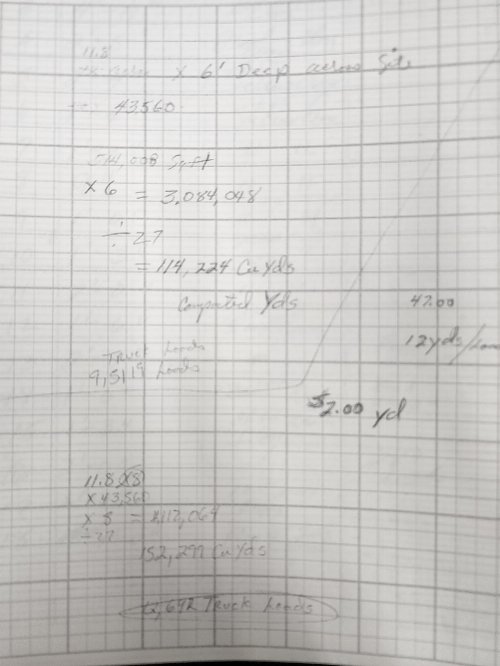 11.8
x 6' Deep across Site
43560
514,008 Sqft
x 6 = 3,084,048
÷ 27
= 114,224 Cu Yds
Compacted Yds
42.00
12yds/
Truck Loads
9,519 Loads
$2.00 yd
11.8 (x8)
x 43,560
x 8 = 4,112,064
÷ 27
152,299 Cu Yds
12,692 Truck Loads